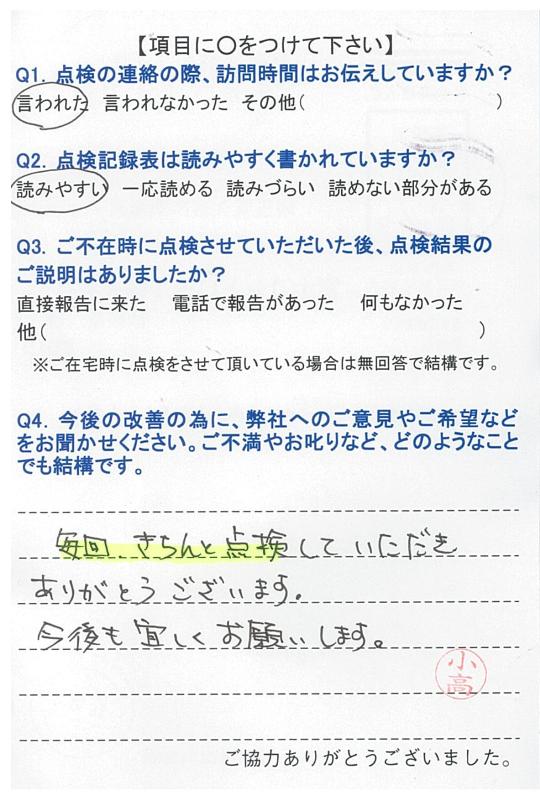 【項目に〇をつけて下さい】
Q1. 点検の連絡の際、訪問時間はお伝えしていますか?
言われた 言われなかった その他( )
Q2. 点検記録表は読みやすく書かれていますか?
読みやすい 一応読める 読みづらい 読めない部分がある
Q3. ご不在時に点検させていただいた後、点検結果の
ご説明はありましたか?
直接報告に来た 電話で報告があった 何もなかった
他( )
※ご在宅時に点検をさせて頂いている場合は無回答で結構です。
Q4. 今後の改善の為に、弊社へのご意見やご希望など
をお聞かせください。ご不満やお叱りなど、どのようなこと
でも結構です。
毎回、きちんと点検していただき
ありがとうございます。
今後も宜しくお願いします。
小高
ご協力ありがとうございました。